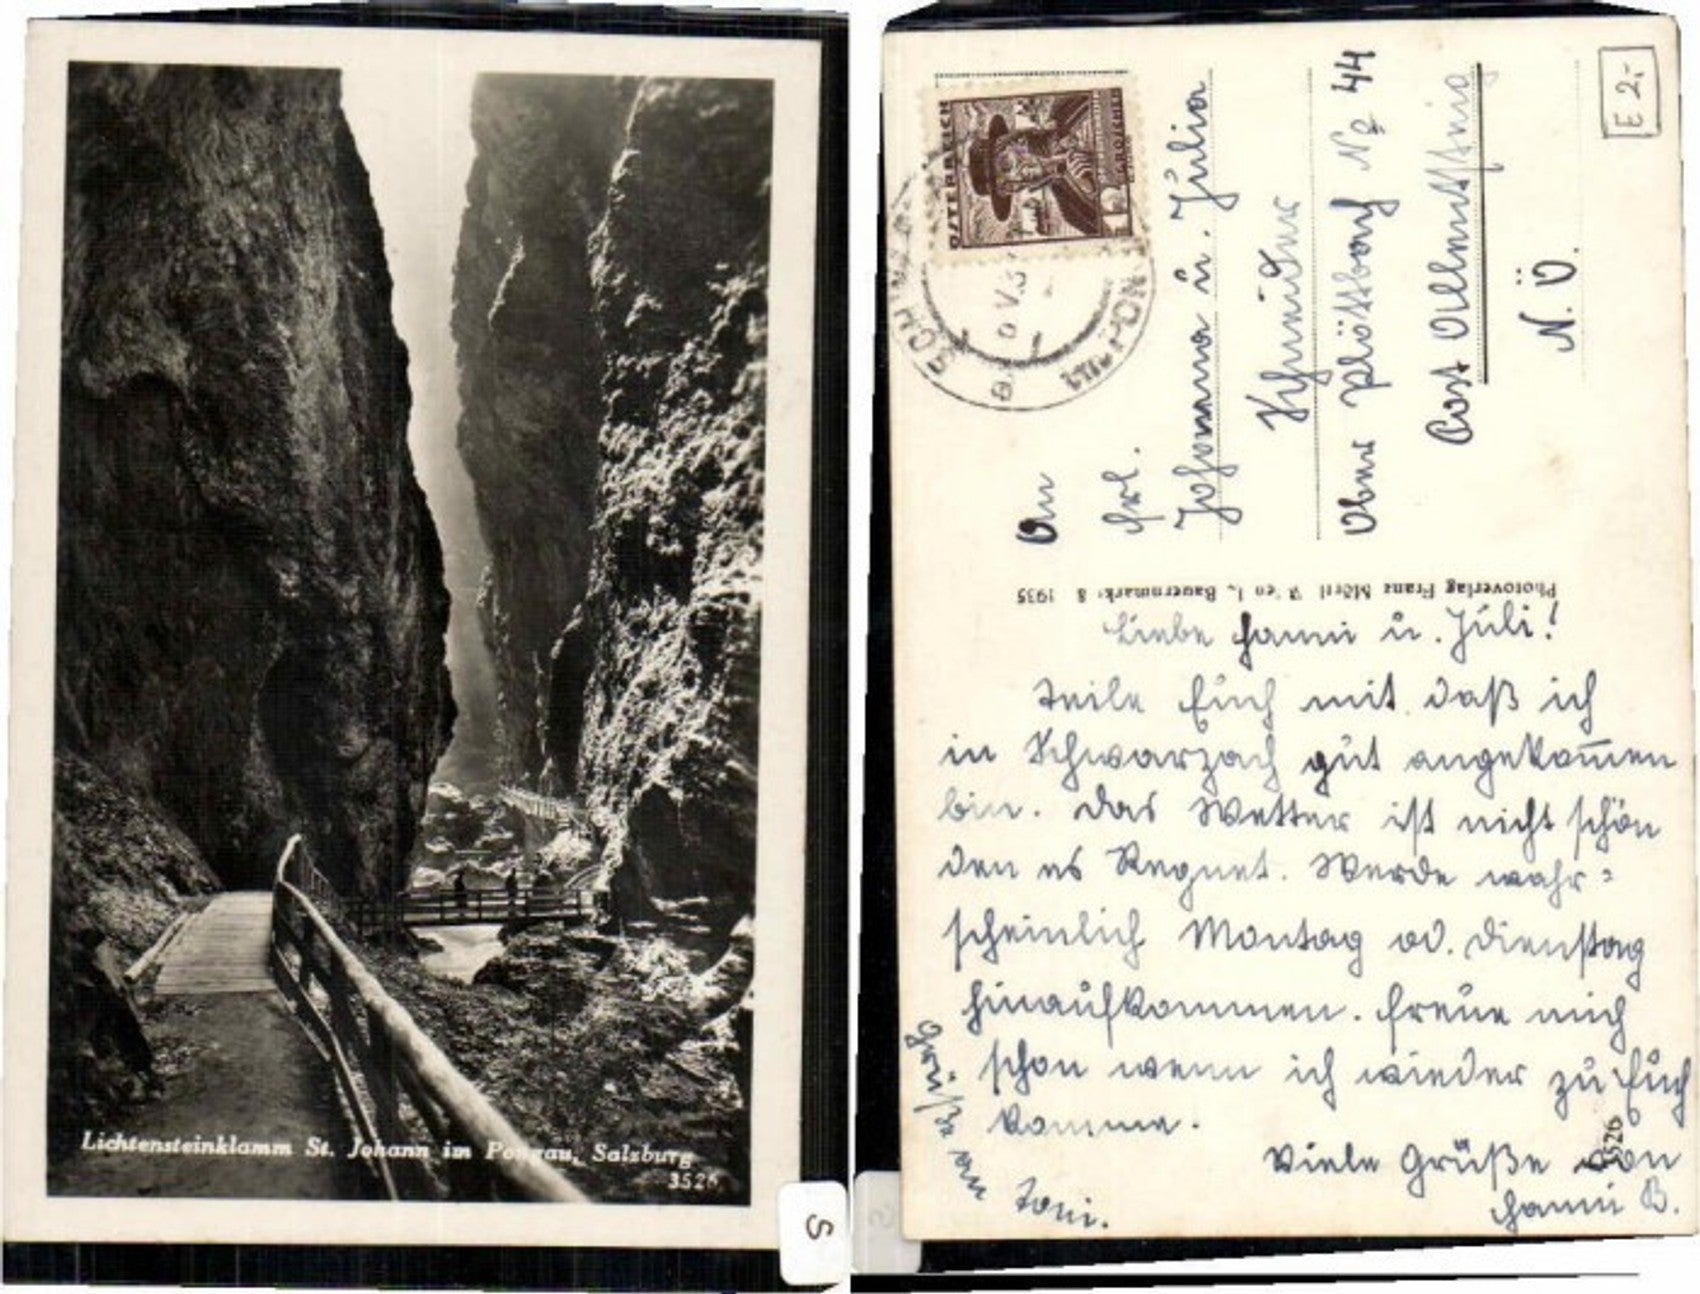 Lichtensteinklamm St. Johann im Pongau, Salzburg
3526
S
ÖSTERREICH
GROSCHEN
E 2.-
An
Frl.
Johanna u. Julia
Schneider
Ober Plöttbach № 44
Post Allentsteig
N. Ö.
Photoverlag Franz Mörtl Wien I., Bauernmarkt 8 1935
Liebe Hanni u. Juli!
Teile Euch mit daß ich
in Schwarzach gut angekom̅en
bin. Das Wetter ist nicht schön
den es Regnet. Werde wahr=
scheinlich Montag od. Dienstag
hinaufkommen. Freue mich
schon wenn ich wieder zu Euch
komme.
Viele Grüße von
Hanni B.
Grüße an
Toni.
3526